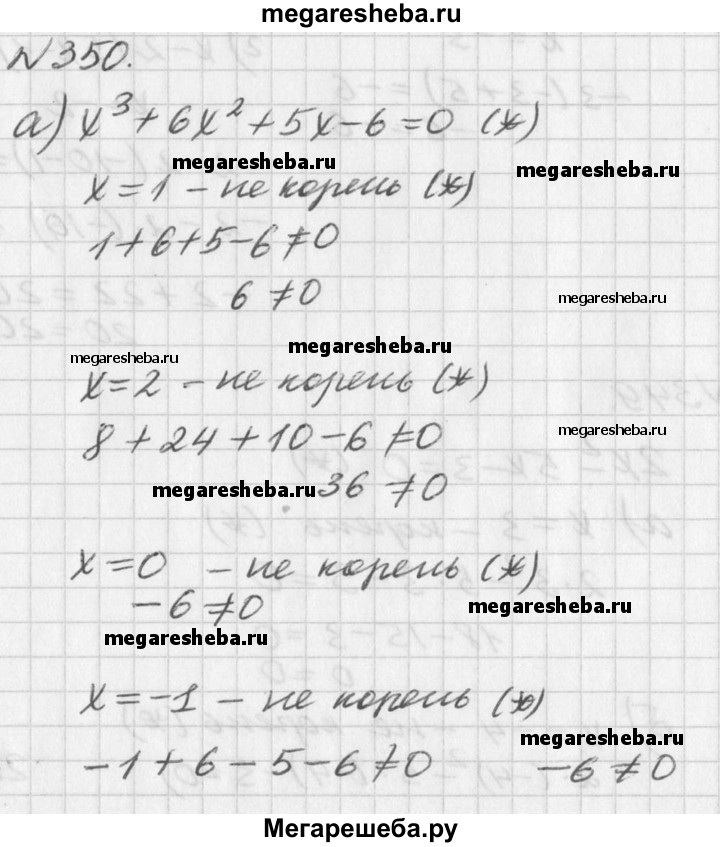 megaresheba.ru
N350.
а) x³ + 6x² + 5x - 6 = 0 (*)
megaresheba.ru
megaresheba.ru
x = 1 - не корень (*)
1 + 6 + 5 - 6 ≠ 0
6 ≠ 0
megaresheba.ru
megaresheba.ru
megaresheba.ru
x = 2 - не корень (*)
8 + 24 + 10 - 6 ≠ 0
megaresheba.ru
megaresheba.ru
36 ≠ 0
x = 0 - не корень (*)
-6 ≠ 0
megaresheba.ru
megaresheba.ru
x = -1 - не корень (*)
-1 + 6 - 5 - 6 ≠ 0 -6 ≠ 0
megaresheba.ru
Мегарешеба.ру